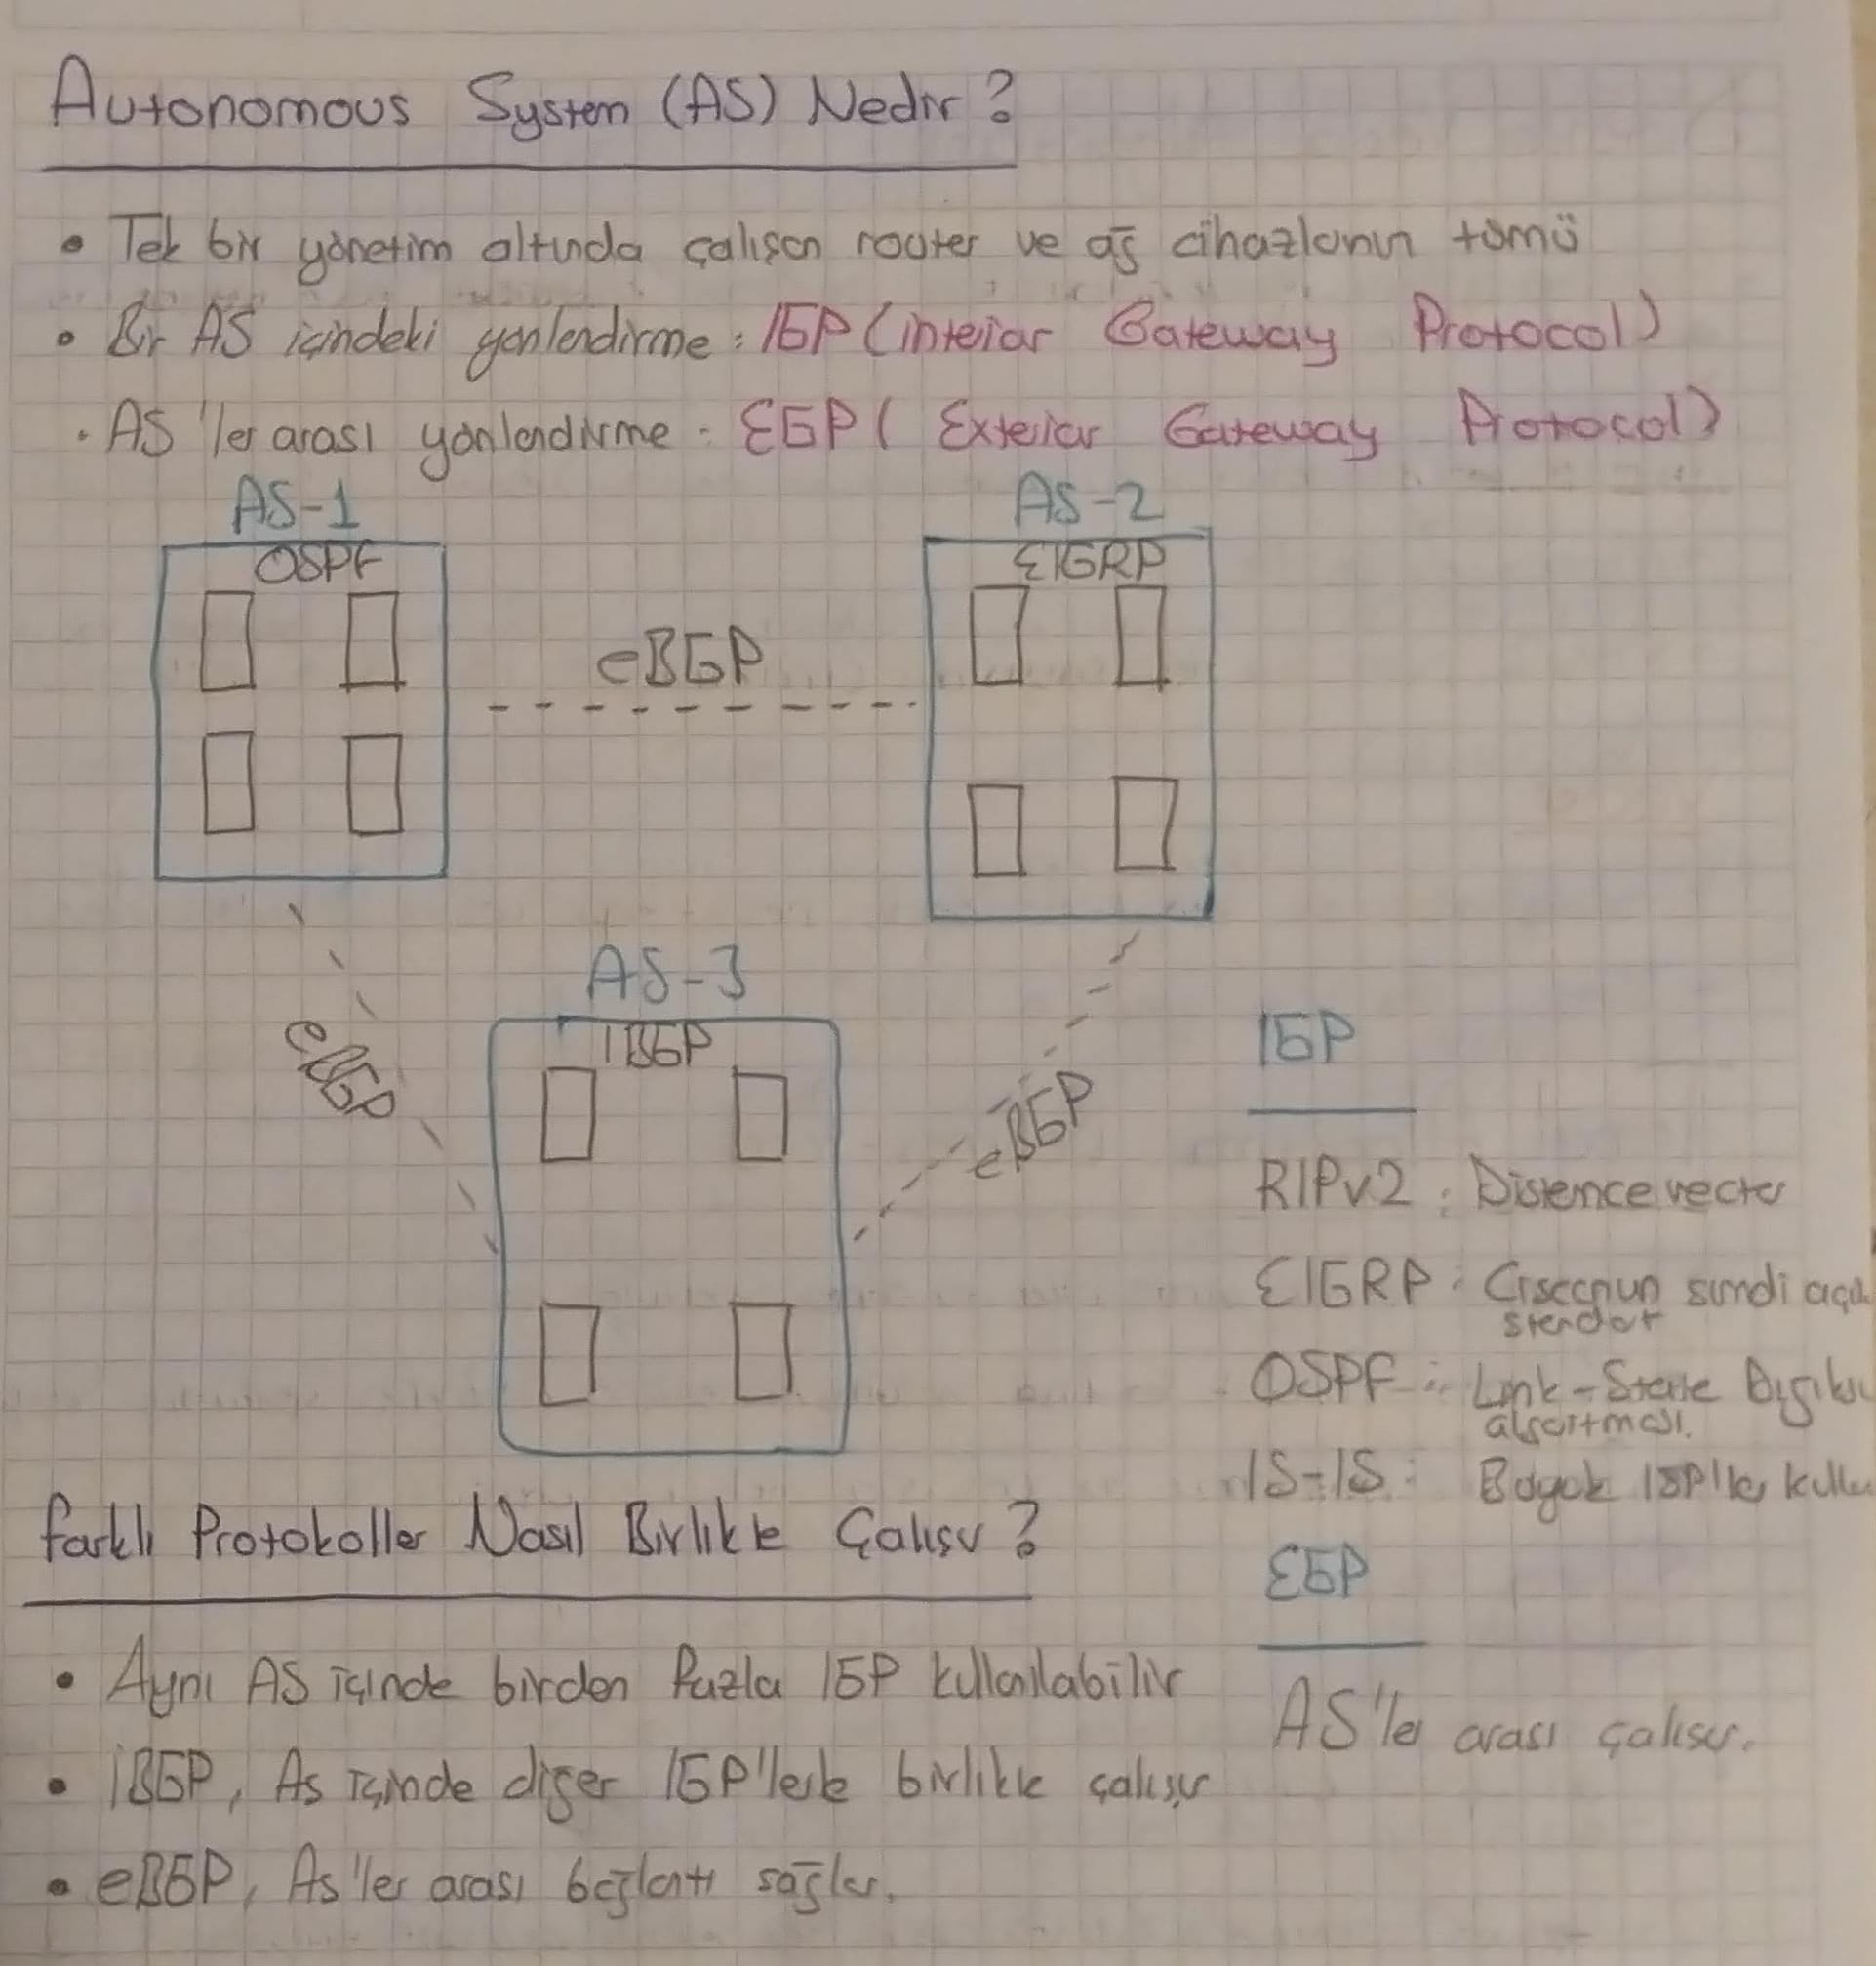 Autonomous System (AS) Nedir?
• Tek bir yönetim altında çalışan router ve ağ cihazlarının tümü
• Bir AS içindeki yönlendirme: IGP (interior Gateway Protocol)
• AS'ler arası yönlendirme: EGP (Exterior Gateway Protocol)
AS-1
OSPF
AS-2
EIGRP
eBGP
AS-3
IBGP
eBGP
eBGP
IGP
RIPv2: Distence vector
EIGRP: Cisconun şimdi açık
standart
OSPF: Link-State
algoritması.
IS-IS: Büyük ISP'ler
Farklı Protokoller Nasıl Birlikte Çalışır?
• Aynı AS içinde birden fazla IGP kullanılabilir
• iBGP, As içinde diğer IGP'lerle birlikte çalışır
• eBGP, As'ler arası bağlantı sağlar.
EGP
AS'ler arası çalışır.